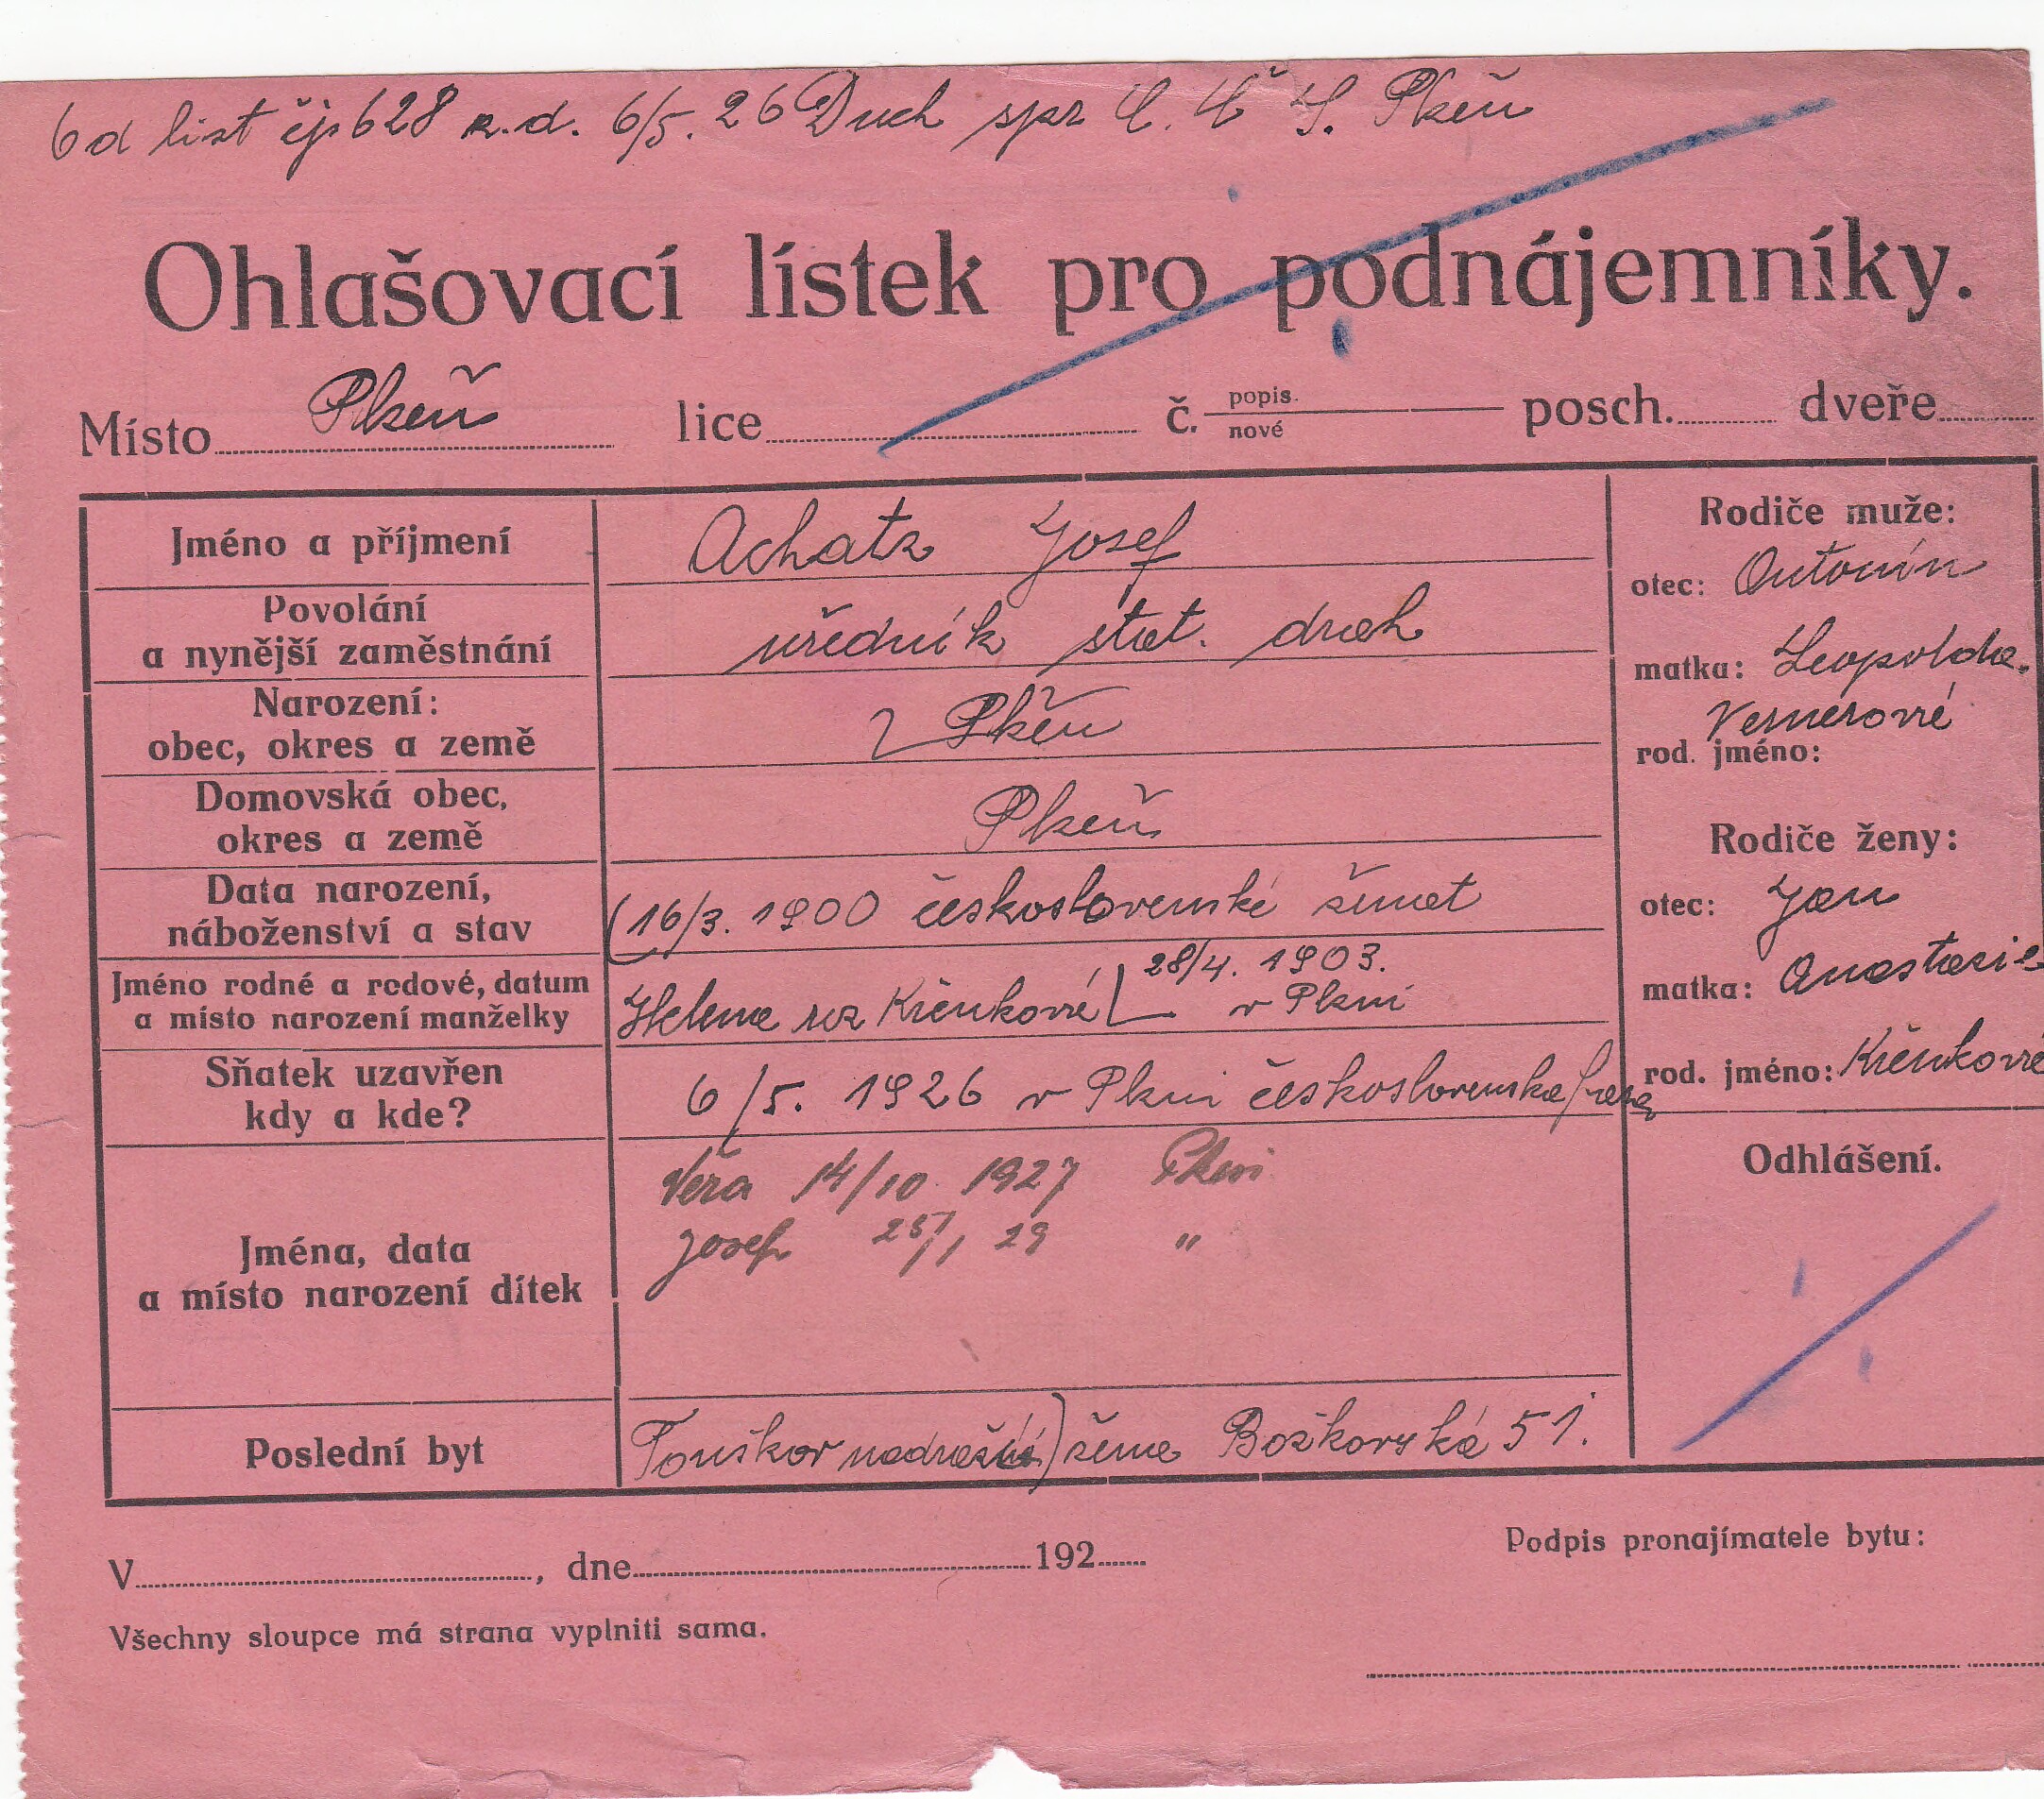 od list čj 628 z.d. 6/5. 26 Duch spr C. Č S. Plzeň
Ohlašovací lístek pro podnájemníky.
Místo Plzeň lice č. popis. nové posch. dveře
Jméno a příjmení
Achatz Josef
Povolání
a nynější zaměstnání
úředník stat. drah
Narození:
obec, okres a země
Plzeň
Domovská obec,
okres a země
Plzeň
Data narození,
náboženství a stav
16/3. 1900 československé ženat
Jméno rodné a rodové, datum
a místo narození manželky
Helena roz Křenková 28/4. 1903.
v Plzni
Sňatek uzavřen
kdy a kde?
6/5. 1926 v Plzni československa
Jména, data
a místo narození dítek
Věra 14/10 1927 Plzni
Josef 25/1 29 "
Poslední byt
Touškov žena Božkovská 51.
Rodiče muže:
otec: Antonín
matka: Leopolda.
Vernerové
rod. jméno:
Rodiče ženy:
otec: Jan
matka: Anastasie
rod. jméno: Křenkové
Odhlášení.
V , dne 192
Podpis pronajímatele bytu:
Všechny sloupce má strana vyplniti sama.